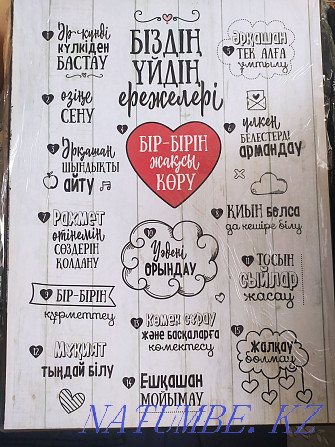 БІЗДІҢ
ҮЙДІҢ
ережелері
1
Әр күнді
күлкіден
БАСТАУ
2
өзіңе
СЕНУ
4
БІР-БІРІН
жақсы
КӨРУ
5
әрқашан
ТЕК АЛҒА
ұмтылу
6
үлкен
БЕЛЕСТЕРДІ
армандау
Әрқашан
ШЫНДЫҚТЫ
айту
7
Рахмет
өтінемін
СӨЗДЕРІН
ҚОЛДАНУ
8
ҚИЫН болса
да кешіре білу
9
БІР-БІРІН
құрметтеу
10
Уәдені
ОРЫНДАУ
11
ТОСЫН
СЫЙЛАР
ЖАСАУ
12
МҰҚИЯТ
тыңдай білу
13
Көмек сұрау
және басқаларға
көмектесу
14
Ешқашан
МОЙЫМАУ
15
ЖАЛҚАУ
болмау
NATUMBE.KZ